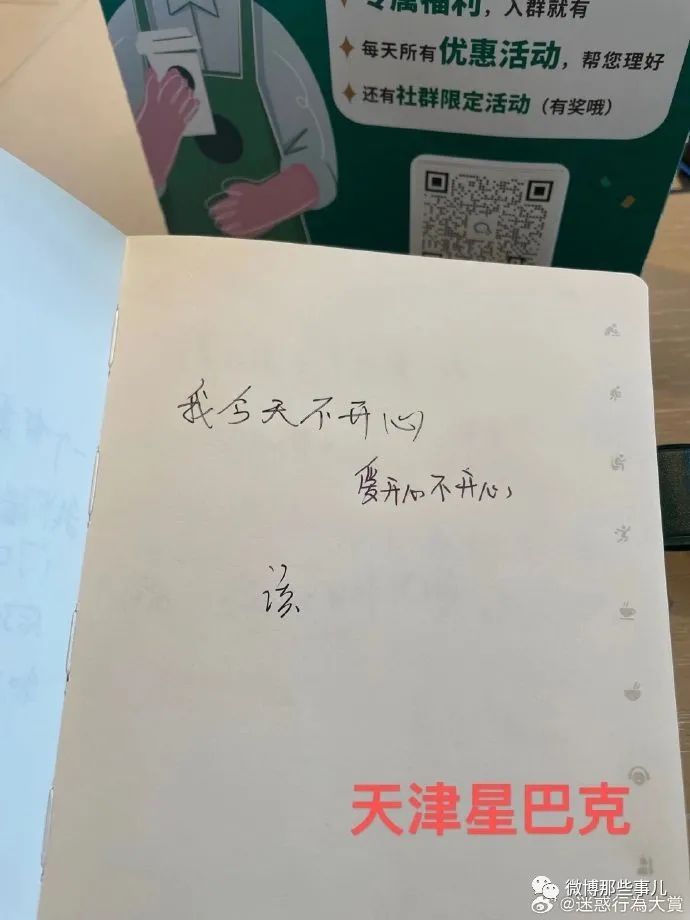 专属福利，入群就有
每天所有优惠活动，帮您理好
还有社群限定活动（有奖哦）
我今天不开心
爱开心不开心，
该
天津星巴克
微博那些事儿
@迷惑行為大賞